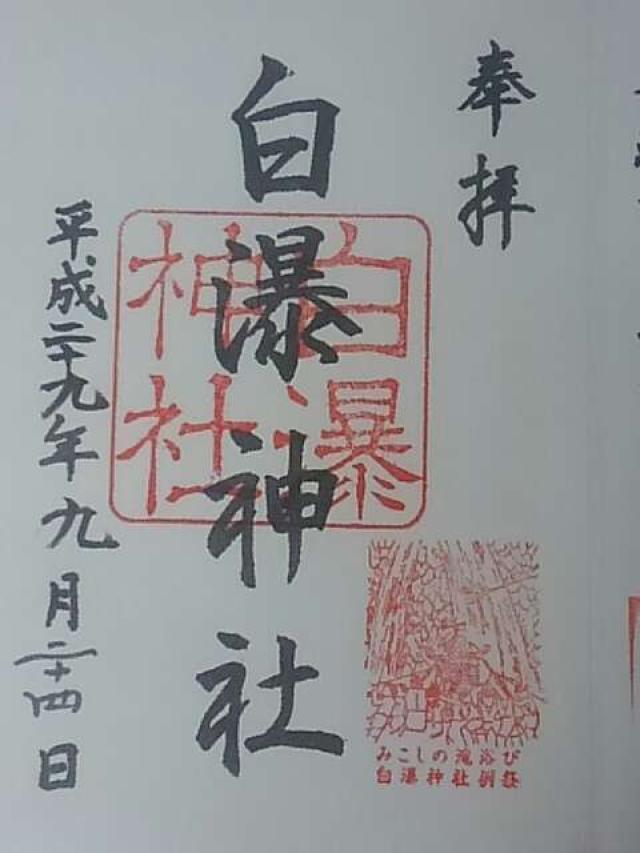 奉拝
白瀑神社
白瀑
神社
平成二十九年九月二十四日
みこしの滝浴び
白瀑神社例祭